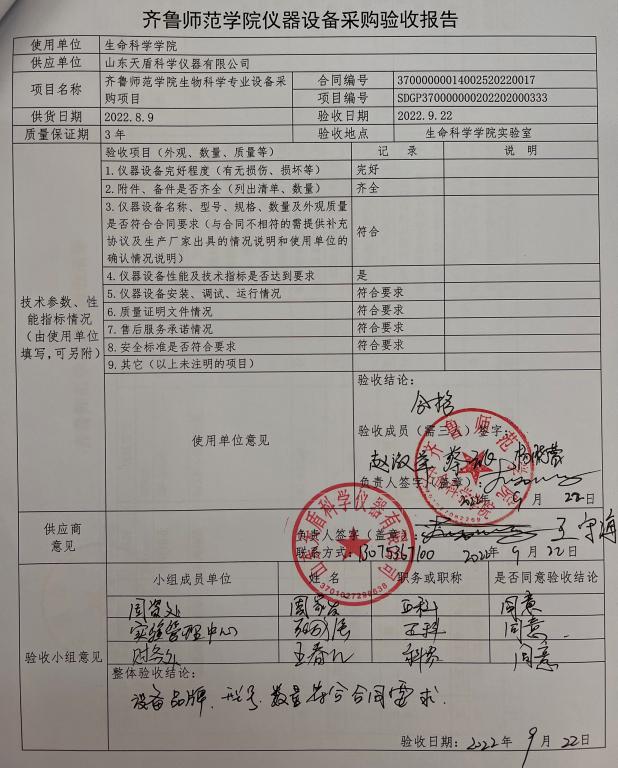 齐鲁师范学院仪器设备采购验收报告
使用单位 生命科学学院
供应单位 山东天盾科学仪器有限公司
项目名称 齐鲁师范学院生物科学专业设备采购项目 合同编号 37000000014002520220017
项目编号 SDGP370000000202202000333
供货日期 2022.8.9 验收日期 2022.9.22
质量保证期 3年 验收地点 生命科学学院实验室
技术参数、性能指标情况（由使用单位填写，可另附）
验收项目（外观、数量、质量等） 记 录 说 明
1.仪器设备完好程度（有无损伤、损坏等） 完好
2.附件、备件是否齐全（列出清单、数量） 齐全
3.仪器设备名称、型号、规格、数量及外观质量
是否符合合同要求（与合同不相符的需提供补充
协议及生产厂家出具的情况说明和使用单位的
确认情况说明） 符合
4.仪器设备性能及技术指标是否达到要求 是
5.仪器设备安装、调试、运行情况 符合要求
6.质量证明文件情况 符合要求
7.售后服务承诺情况 符合要求
8.安全标准是否符合要求 符合要求
9.其它（以上未注明的项目）
使用单位意见
验收结论：
合格
验收成员（需三人）签字：
负责人签字（盖章）：
2022年 9 月 22 日
供应商意见
负责人签字（盖章）： 王守海
联系方式：
2022年 9 月 22 日
3701027298638
验收小组意见
小组成员单位 姓 名 职务或职称 是否同意验收结论
国资处 正科 同意
实验管理中心 正科 同意
财务处 科员 同意
整体验收结论：
设备品牌、型号、数量符合合同要求.
验收日期：2022年 9 月 22 日